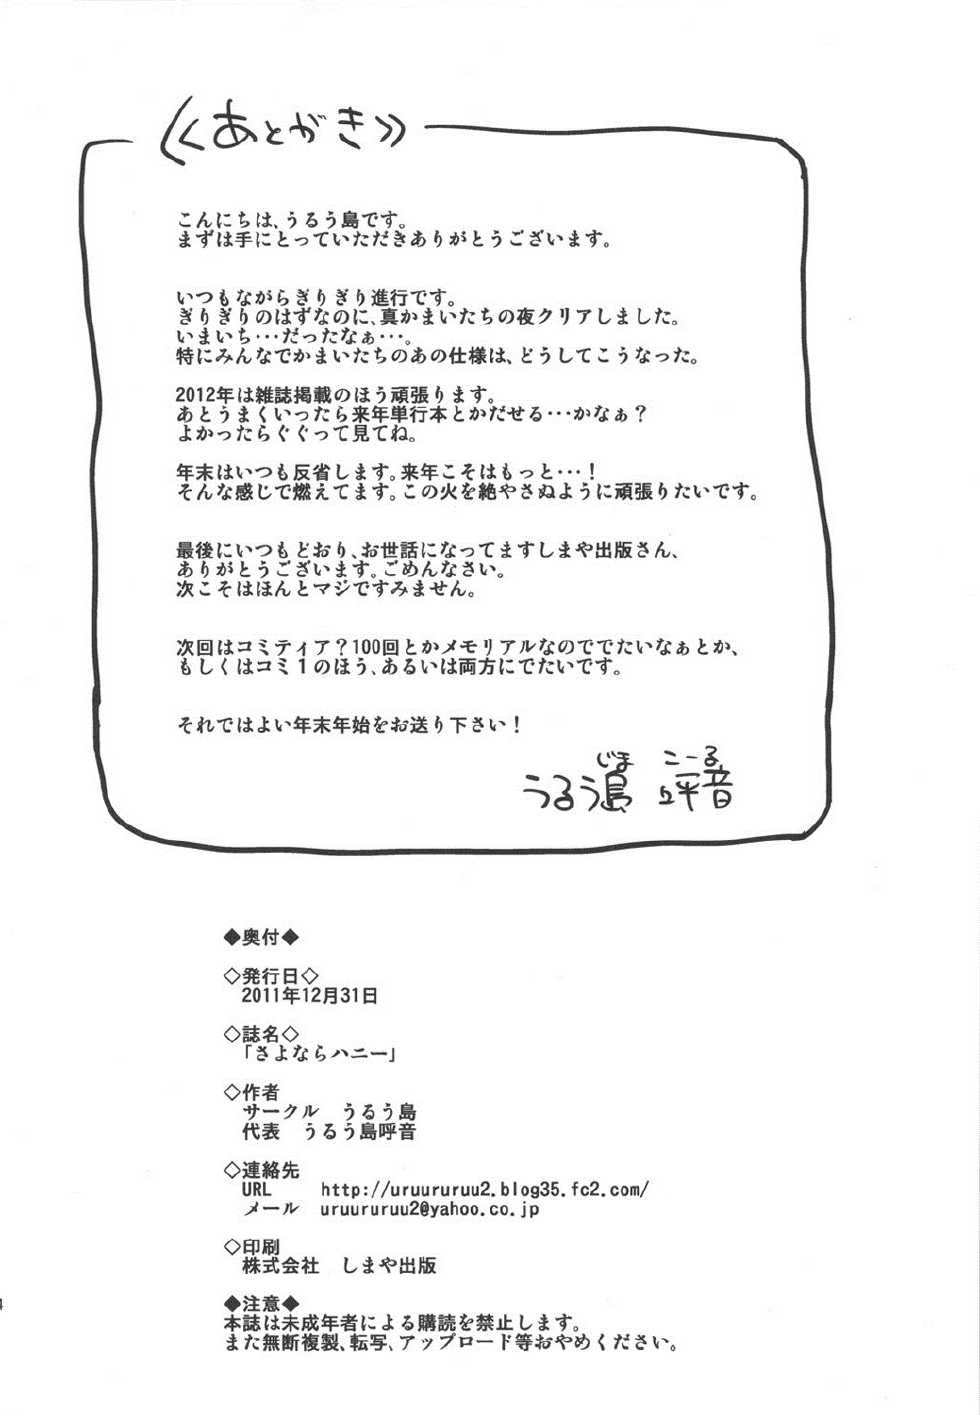 《あとがき》
こんにちは、うるう島です。
まずは手にとっていただきありがとうございます。
いつもながらぎりぎり進行です。
ぎりぎりのはずなのに、真かまいたちの夜クリアしました。
いまいち・・・だったなぁ・・・。
特にみんなでかまいたちのあの仕様は、どうしてこうなった。
2012年は雑誌掲載のほう頑張ります。
あとうまくいったら来年単行本とかだせる・・・かなぁ？
よかったらぐぐって見てね。
年末はいつも反省します。来年こそはもっと・・・！
そんな感じで燃えてます。この火を絶やさぬように頑張りたいです。
最後にいつもどおり、お世話になってますしまや出版さん、
ありがとうございます。ごめんなさい。
次こそはほんとマジですみません。
次回はコミティア？100回とかメモリアルなのででたいなぁとか、
もしくはコミ１のほう、あるいは両方にでたいです。
それではよい年末年始をお送り下さい！
じま こーる
うるう島 呼音
◆奥付◆
◇発行日◇
2011年12月31日
◇誌名◇
「さよならハニー」
◇作者
サークル　うるう島
代表　うるう島呼音
◇連絡先
URL　http://uruururuu2.blog35.fc2.com/
メール　uruururuu2@yahoo.co.jp
◇印刷
株式会社　しまや出版
◆注意◆
本誌は未成年者による購読を禁止します。
また無断複製、転写、アップロード等おやめください。